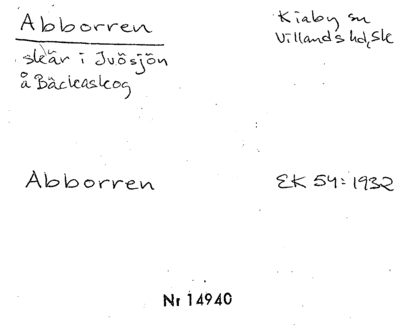 Abborren
Kiaby sn
Villands hd, Sk
skär i Ivösjön
å Bäckaskog
Abborren
EK 54: 1932
Nr 14940